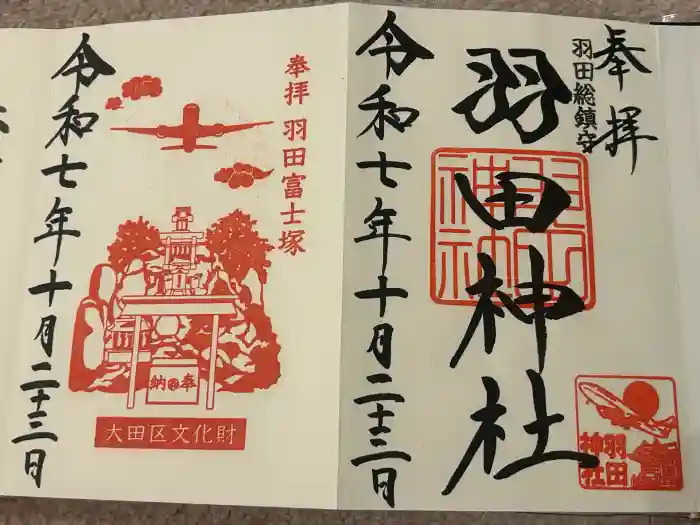 奉拝
羽田総鎮守
羽田神社
羽田神社
令和七年十月二十三日
羽田神社
奉拝 羽田富士塚
奉納
大田区文化財
令和七年十月二十三日